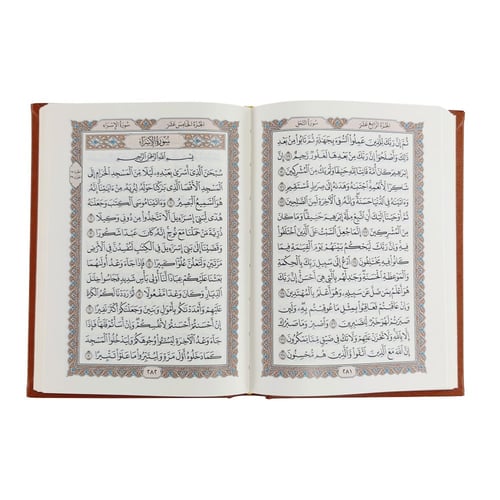 الجزء الرابع عشر سورة النحل
ثُمَّ إِنَّ رَبَّكَ لِلَّذِينَ عَمِلُوا۟ ٱلسُّوٓءَ بِجَهَٰلَةٍ ثُمَّ تَابُوا۟ مِنۢ بَعْدِ
ذَٰلِكَ وَأَصْلَحُوٓا۟ إِنَّ رَبَّكَ مِنۢ بَعْدِهَا لَغَفُورٌ رَّحِيمٌ ١١٩
إِنَّ إِبْرَٰهِيمَ كَانَ أُمَّةً قَانِتًا لِّلَّهِ حَنِيفًا وَلَمْ يَكُ مِنَ ٱلْمُشْرِكِينَ ١٢٠
شَاكِرًا لِّأَنْعُمِهِ ٱجْتَبَىٰهُ وَهَدَىٰهُ إِلَىٰ صِرَٰطٍ مُّسْتَقِيمٍ ١٢١
وَءَاتَيْنَٰهُ فِى ٱلدُّنْيَا حَسَنَةً وَإِنَّهُۥ فِى ٱلْءَاخِرَةِ لَمِنَ ٱلصَّٰلِحِينَ ١٢٢
ثُمَّ أَوْحَيْنَآ إِلَيْكَ أَنِ ٱتَّبِعْ مِلَّةَ إِبْرَٰهِيمَ حَنِيفًا وَمَا كَانَ مِنَ
ٱلْمُشْرِكِينَ ١٢٣ إِنَّمَا جُعِلَ ٱلسَّبْتُ عَلَى ٱلَّذِينَ ٱخْتَلَفُوا۟
فِيهِ وَإِنَّ رَبَّكَ لَيَحْكُمُ بَيْنَهُمْ يَوْمَ ٱلْقِيَٰمَةِ فِيمَا كَانُوا۟
فِيهِ يَخْتَلِفُونَ ١٢٤ ٱدْعُ إِلَىٰ سَبِيلِ رَبِّكَ بِٱلْحِكْمَةِ
وَٱلْمَوْعِظَةِ ٱلْحَسَنَةِ وَجَٰدِلْهُم بِٱلَّتِى هِىَ أَحْسَنُ إِنَّ رَبَّكَ
هُوَ أَعْلَمُ بِمَن ضَلَّ عَن سَبِيلِهِۦ وَهُوَ أَعْلَمُ بِٱلْمُهْتَدِينَ ١٢٥
وَإِنْ عَاقَبْتُمْ فَعَاقِبُوا۟ بِمِثْلِ مَا عُوقِبْتُم بِهِۦ وَلَئِن
صَبَرْتُمْ لَهُوَ خَيْرٌ لِّلصَّٰبِرِينَ ١٢٦ وَٱصْبِرْ وَمَا صَبْرُكَ
إِلَّا بِٱللَّهِ وَلَا تَحْزَنْ عَلَيْهِمْ وَلَا تَكُ فِى ضَيْقٍ مِّمَّا يَمْكُرُونَ ١٢٧
إِنَّ ٱللَّهَ مَعَ ٱلَّذِينَ ٱتَّقَوا۟ وَّٱلَّذِينَ هُم مُّحْسِنُونَ ١٢٨
٢٨١
الجزء الخامس عشر سورة الإسراء
سورة الإسراء
بِسْمِ ٱللَّهِ ٱلرَّحْمَٰنِ ٱلرَّحِيمِ
سُبْحَٰنَ ٱلَّذِىٓ أَسْرَىٰ بِعَبْدِهِۦ لَيْلًا مِّنَ ٱلْمَسْجِدِ ٱلْحَرَامِ إِلَى
ٱلْمَسْجِدِ ٱلْأَقْصَا ٱلَّذِى بَٰرَكْنَا حَوْلَهُۥ لِنُرِيَهُۥ مِنْ ءَايَٰتِنَآ إِنَّهُۥ
هُوَ ٱلسَّمِيعُ ٱلْبَصِيرُ ١ وَءَاتَيْنَا مُوسَى ٱلْكِتَٰبَ وَجَعَلْنَٰهُ
هُدًى لِّبَنِىٓ إِسْرَٰٓءِيلَ أَلَّا تَتَّخِذُوا۟ مِن دُونِى وَكِيلًا ٢
ذُرِّيَّةَ مَنْ حَمَلْنَا مَعَ نُوحٍ إِنَّهُۥ كَانَ عَبْدًا شَكُورًا ٣
وَقَضَيْنَآ إِلَىٰ بَنِىٓ إِسْرَٰٓءِيلَ فِى ٱلْكِتَٰبِ لَتُفْسِدُنَّ فِى ٱلْأَرْضِ
مَرَّتَيْنِ وَلَتَعْلُنَّ عُلُوًّا كَبِيرًا ٤ فَإِذَا جَآءَ وَعْدُ أُولَىٰهُمَا
بَعَثْنَا عَلَيْكُمْ عِبَادًا لَّنَآ أُو۟لِى بَأْسٍ شَدِيدٍ فَجَاسُوا۟ خِلَٰلَ
ٱلدِّيَارِ وَكَانَ وَعْدًا مَّفْعُولًا ٥ ثُمَّ رَدَدْنَا لَكُمُ ٱلْكَرَّةَ
عَلَيْهِمْ وَأَمْدَدْنَٰكُم بِأَمْوَٰلٍ وَبَنِينَ وَجَعَلْنَٰكُمْ أَكْثَرَ نَفِيرًا ٦
إِنْ أَحْسَنتُمْ أَحْسَنتُمْ لِأَنفُسِكُمْ وَإِنْ أَسَأْتُمْ فَلَهَا فَإِذَا
جَآءَ وَعْدُ ٱلْءَاخِرَةِ لِيَسُۥٓـُٔوا۟ وُجُوهَكُمْ وَلِيَدْخُلُوا۟ ٱلْمَسْجِدَ
كَمَا دَخَلُوهُ أَوَّلَ مَرَّةٍ وَلِيُتَبِّرُوا۟ مَا عَلَوْا۟ تَتْبِيرًا ٧
٢٨٢